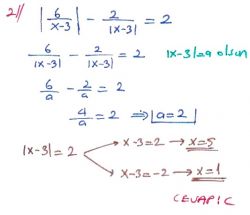 2// |6/x-3| - 2/|x-3| = 2
6/|x-3| - 2/|x-3| = 2 |x-3|=a olsun
6/a - 2/a = 2
4/a = 2 ⇒ |a=2|
|x-3| = 2 → x-3=2 → x=5
→ x-3=-2 → x=1
CEVAP C